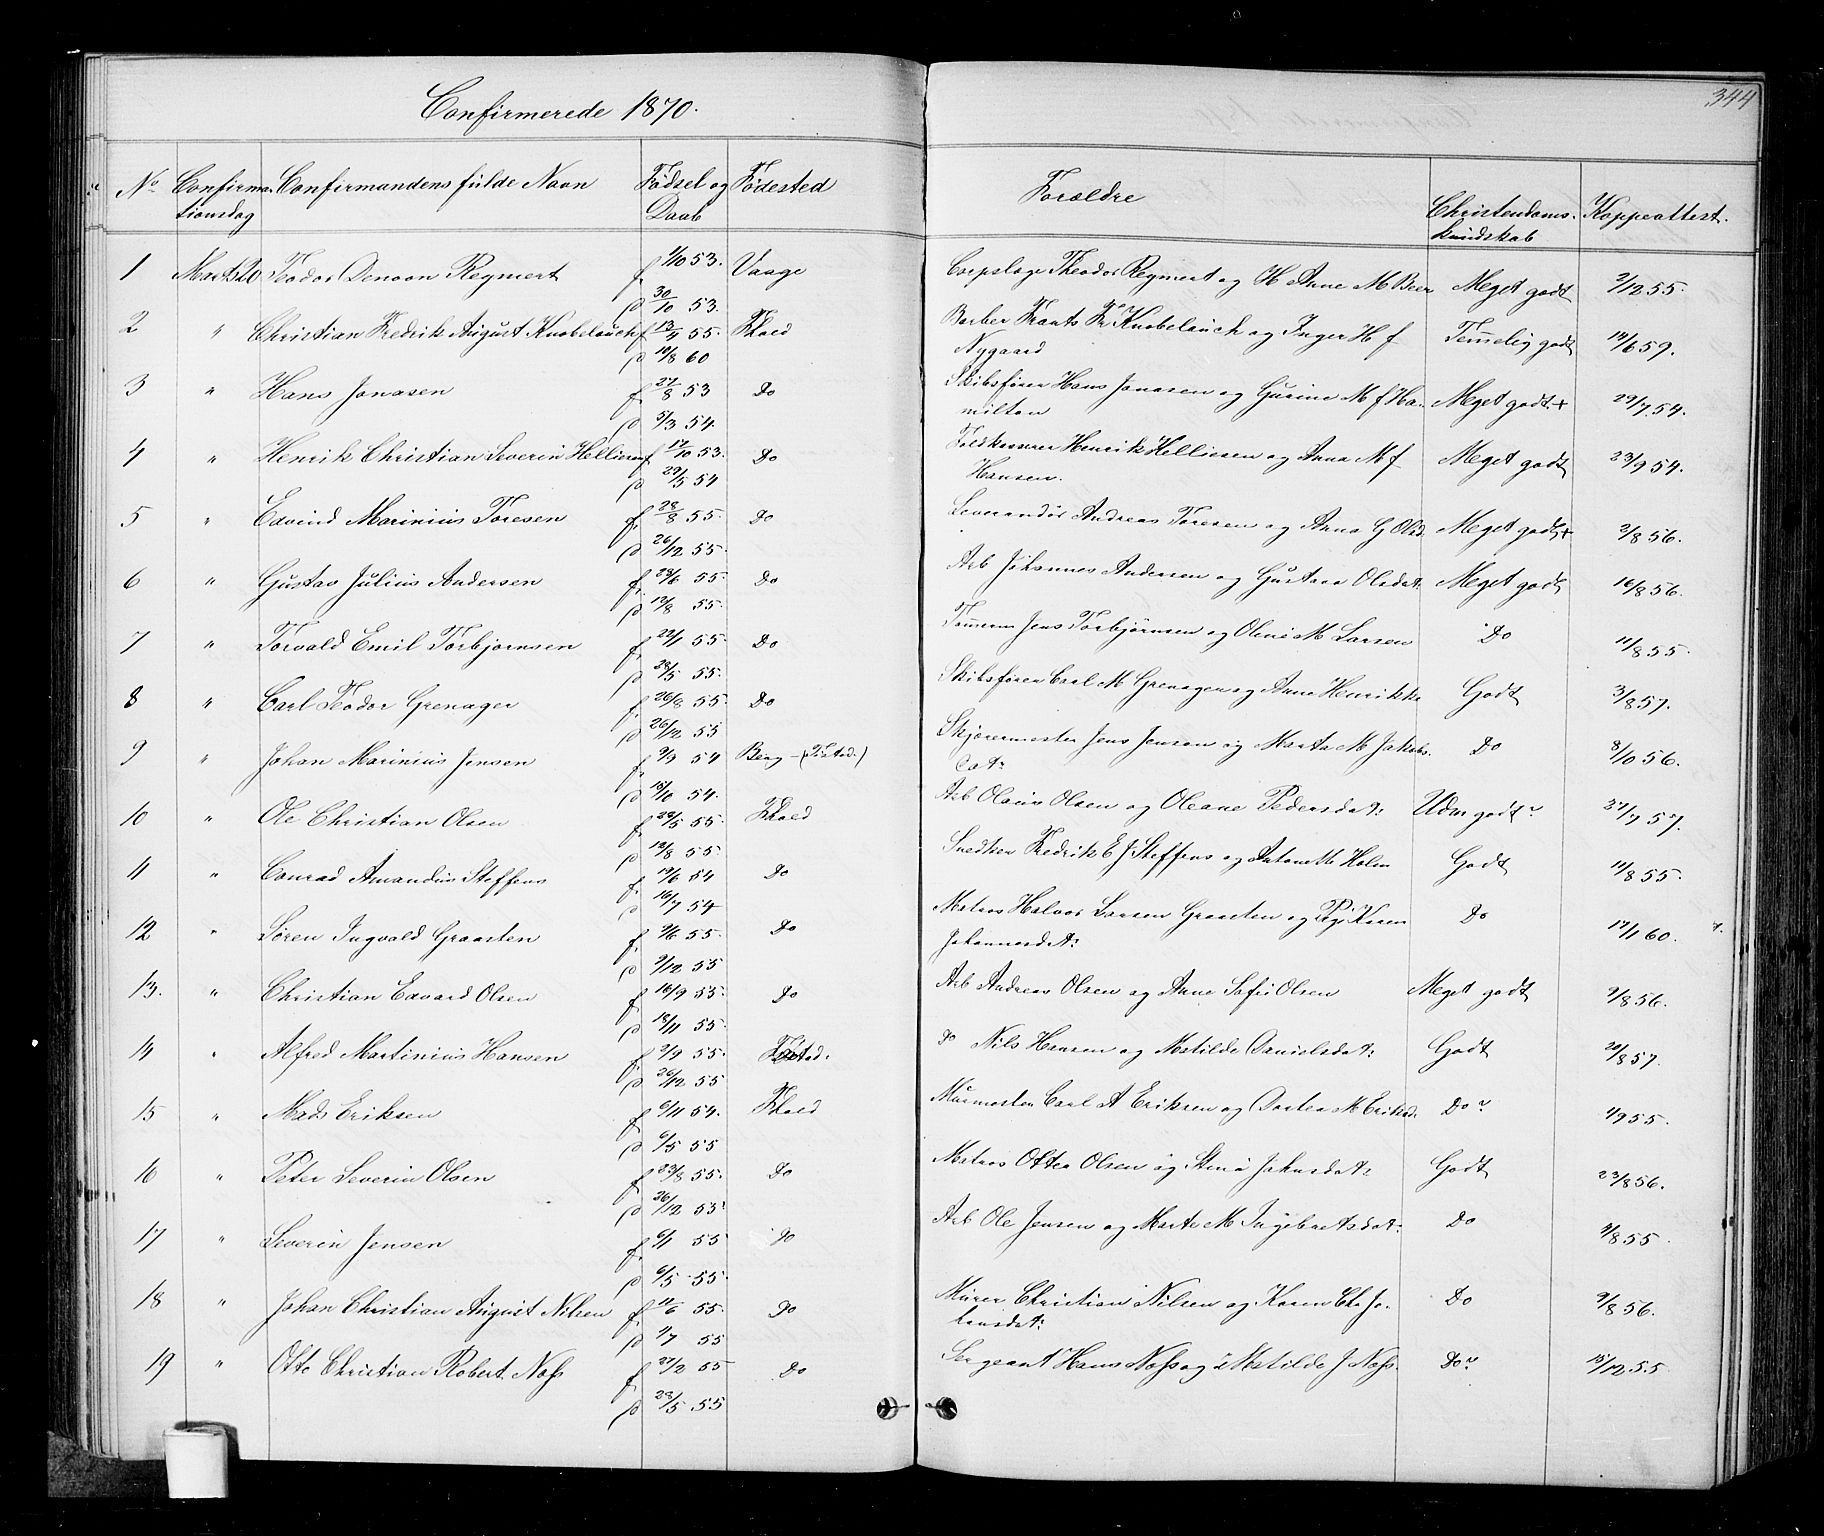 344
Confirmerede 1870.
No Confirma- Confirmandens fulde Navn Fødsel og Fødested Forældre Christendoms- Koppeattest.
tionsdag Daab kundskab
1 Marts 20 Teodor Denoon Regmert f 1/10 53. Vaage Corpslæge Theodor Regmert og H Anne M Meget godt 2/12 55.
d 30/10 53.
2 " Christian Fredrik August Knobelauch f 13/4 55. Fhald Barber Frants Fr Knobelauch og Inger H f Temelig godt 19/6 59.
d 19/8 60 Nygaard
3 " Hans Jonasen f 27/8 53 Do Skibsfører Hans Jonasen og Gurine M f Ha- Meget godt + 29/7 54.
d 5/3 54. milton
4 " Henrik Christian Severin Helliesen f 17/10 53. Do Toldkasserer Henrik Helliesen og Anna M f Meget godt 23/9 54.
d 29/5 54 Hansen.
5 " Edvind Marinius Toresen f. 28/8 55. Do Leverandør Andreas Toresen og Anna G Olsd. Meget godt + 2/8 56.
d 26/12 55.
6 " Gustav Julius Andersen f. 28/6 55. Do Arb Johannes Andersen og Gustava Olsdat: Meget godt 16/8 56.
d. 12/8 55.
7 " Torvald Emil Torbjørnsen f. 22/1 55. Do Tømerm Jens Torbjørnsen og Oline M Larsen Do 11/8 55.
d 28/5 55.
8 " Carl Teodor Grenager f. 26/8 55. Do Skibsfører Carl M Grenager og Anne Henrikke Godt 3/8 57.
d 26/12 55
9 " Johan Marinius Jensen f. 9/9 54 Berg - (Tistad.) Jens Jensen og Marta M Jakobs- Do 8/10 56.
d 15/10 54. dat:
10 " Ole Christian Olsen f 28/5 55. Fhald Arb Olaus Olsen og Oleane Pedersdat: Udm godt 27/7 57.
d 12/8 55.
11 " Conrad Amandus Steffens f. 19/6 54 Do Snedker Fredrik E J Steffens og Antonette Holm Godt 11/8 55.
d 16/7 54
12 " Søren Ingvald Graasten f. 9/6 55. Do Matros Halvor Larsen Graasten og Karen Do 17/1 60.
d 9/12 55 Johannesdat:
13. " Christian Edvard Olsen f. 16/9 55. Do Arb Andreas Olsen og Anne Sofie Olsen Meget godt 9/8 56.
d 18/11 55.
14 " Alfred Martinius Hansen f. 2/9 55. do Nils Hansen og Matilde Danielsdat: Godt 20/8 57.
d 26/12 55
15 " Mads Eriksen f. 6/11 54. Fhald Murmester Carl A Eriksen og Dortea M Eriksd. Do 4/9 55.
d 6/5 55
16 " Peter Severin Olsen f. 23/8 55. Do Matros Ottea Olsen og Stine Johnsdat: Godt 23/8 56.
d 26/12 55
17 " Severin Jensen f. 6/1 55 Do Arb Ole Jensen og Marte M Ingebretsdat: Do 9/8 55.
d 6/5 55.
18 " Johan Christian August Nilsen f. 11/6 55. Do Murer Christian Nilsen og Karen Jo- Do 9/8 56.
d 1/7 55 hansdat:
19 " Otto Christian Robert Næss f 27/2 55 Do Sergeant Hans Næss og Matilde J Næss Do 15/12 55.
d 28/5 55